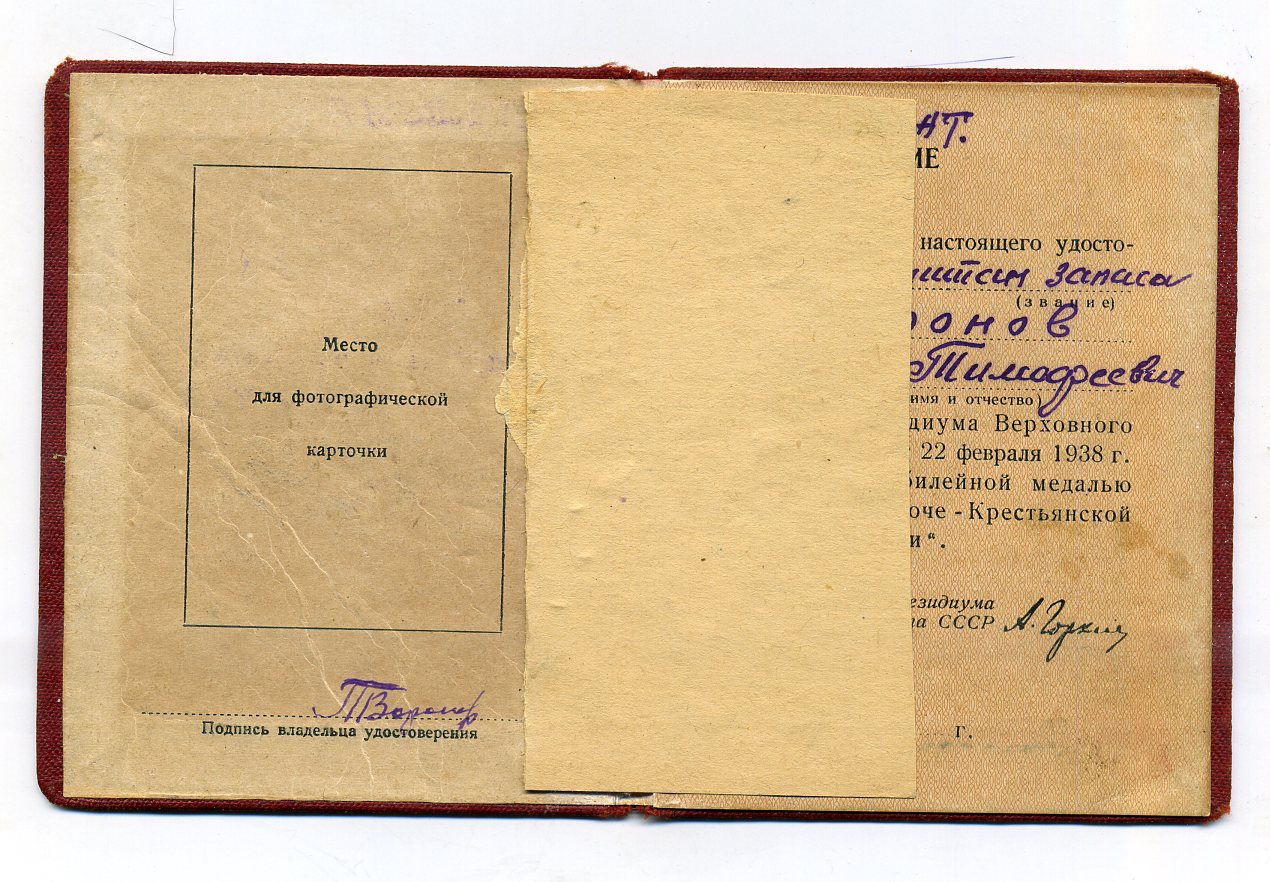 Место
для фотографической
карточки
ТВорон
Подпись владельца удостоверения
нт.
ИЕ
настоящего удосто-
запаса
(звание)
ронов
Тимофеевич
имя и отчество)
диума Верховного
22 февраля 1938 г.
билейной медалью
оче-Крестьянской
и“.
езидиума
та СССР А. Горкин
г.